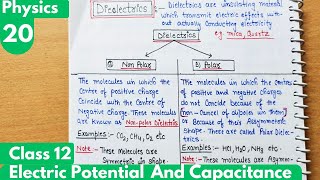 Physics
20
Dielectrics :- Dielectrics are insulating material
which transmit electric effects with-
actually conducting electricity
eg mica, Quartz
Dielectrics
① Non Polar
② Polar
The molecules in which the
Centre of positive charge
Coincide with the Centre of
Negative charge. These molecules
are known as Non-polar Dielectric
Examples:- CO2, CH4, O2 etc
Note :- These molecules are
Symmetric in shape
The molecules in which the centre
of positive and negative charges
do not Coincide because of the
(non-Cancel of dipoles in them)
or Because of their Assymmetric
Shape. There are called Polar Dielec-
trics.
Examples:- HCl, H2O, NH3 etc.
Note :- These molecules are Assymm-
Class 12
Electric Potential And Capacitance